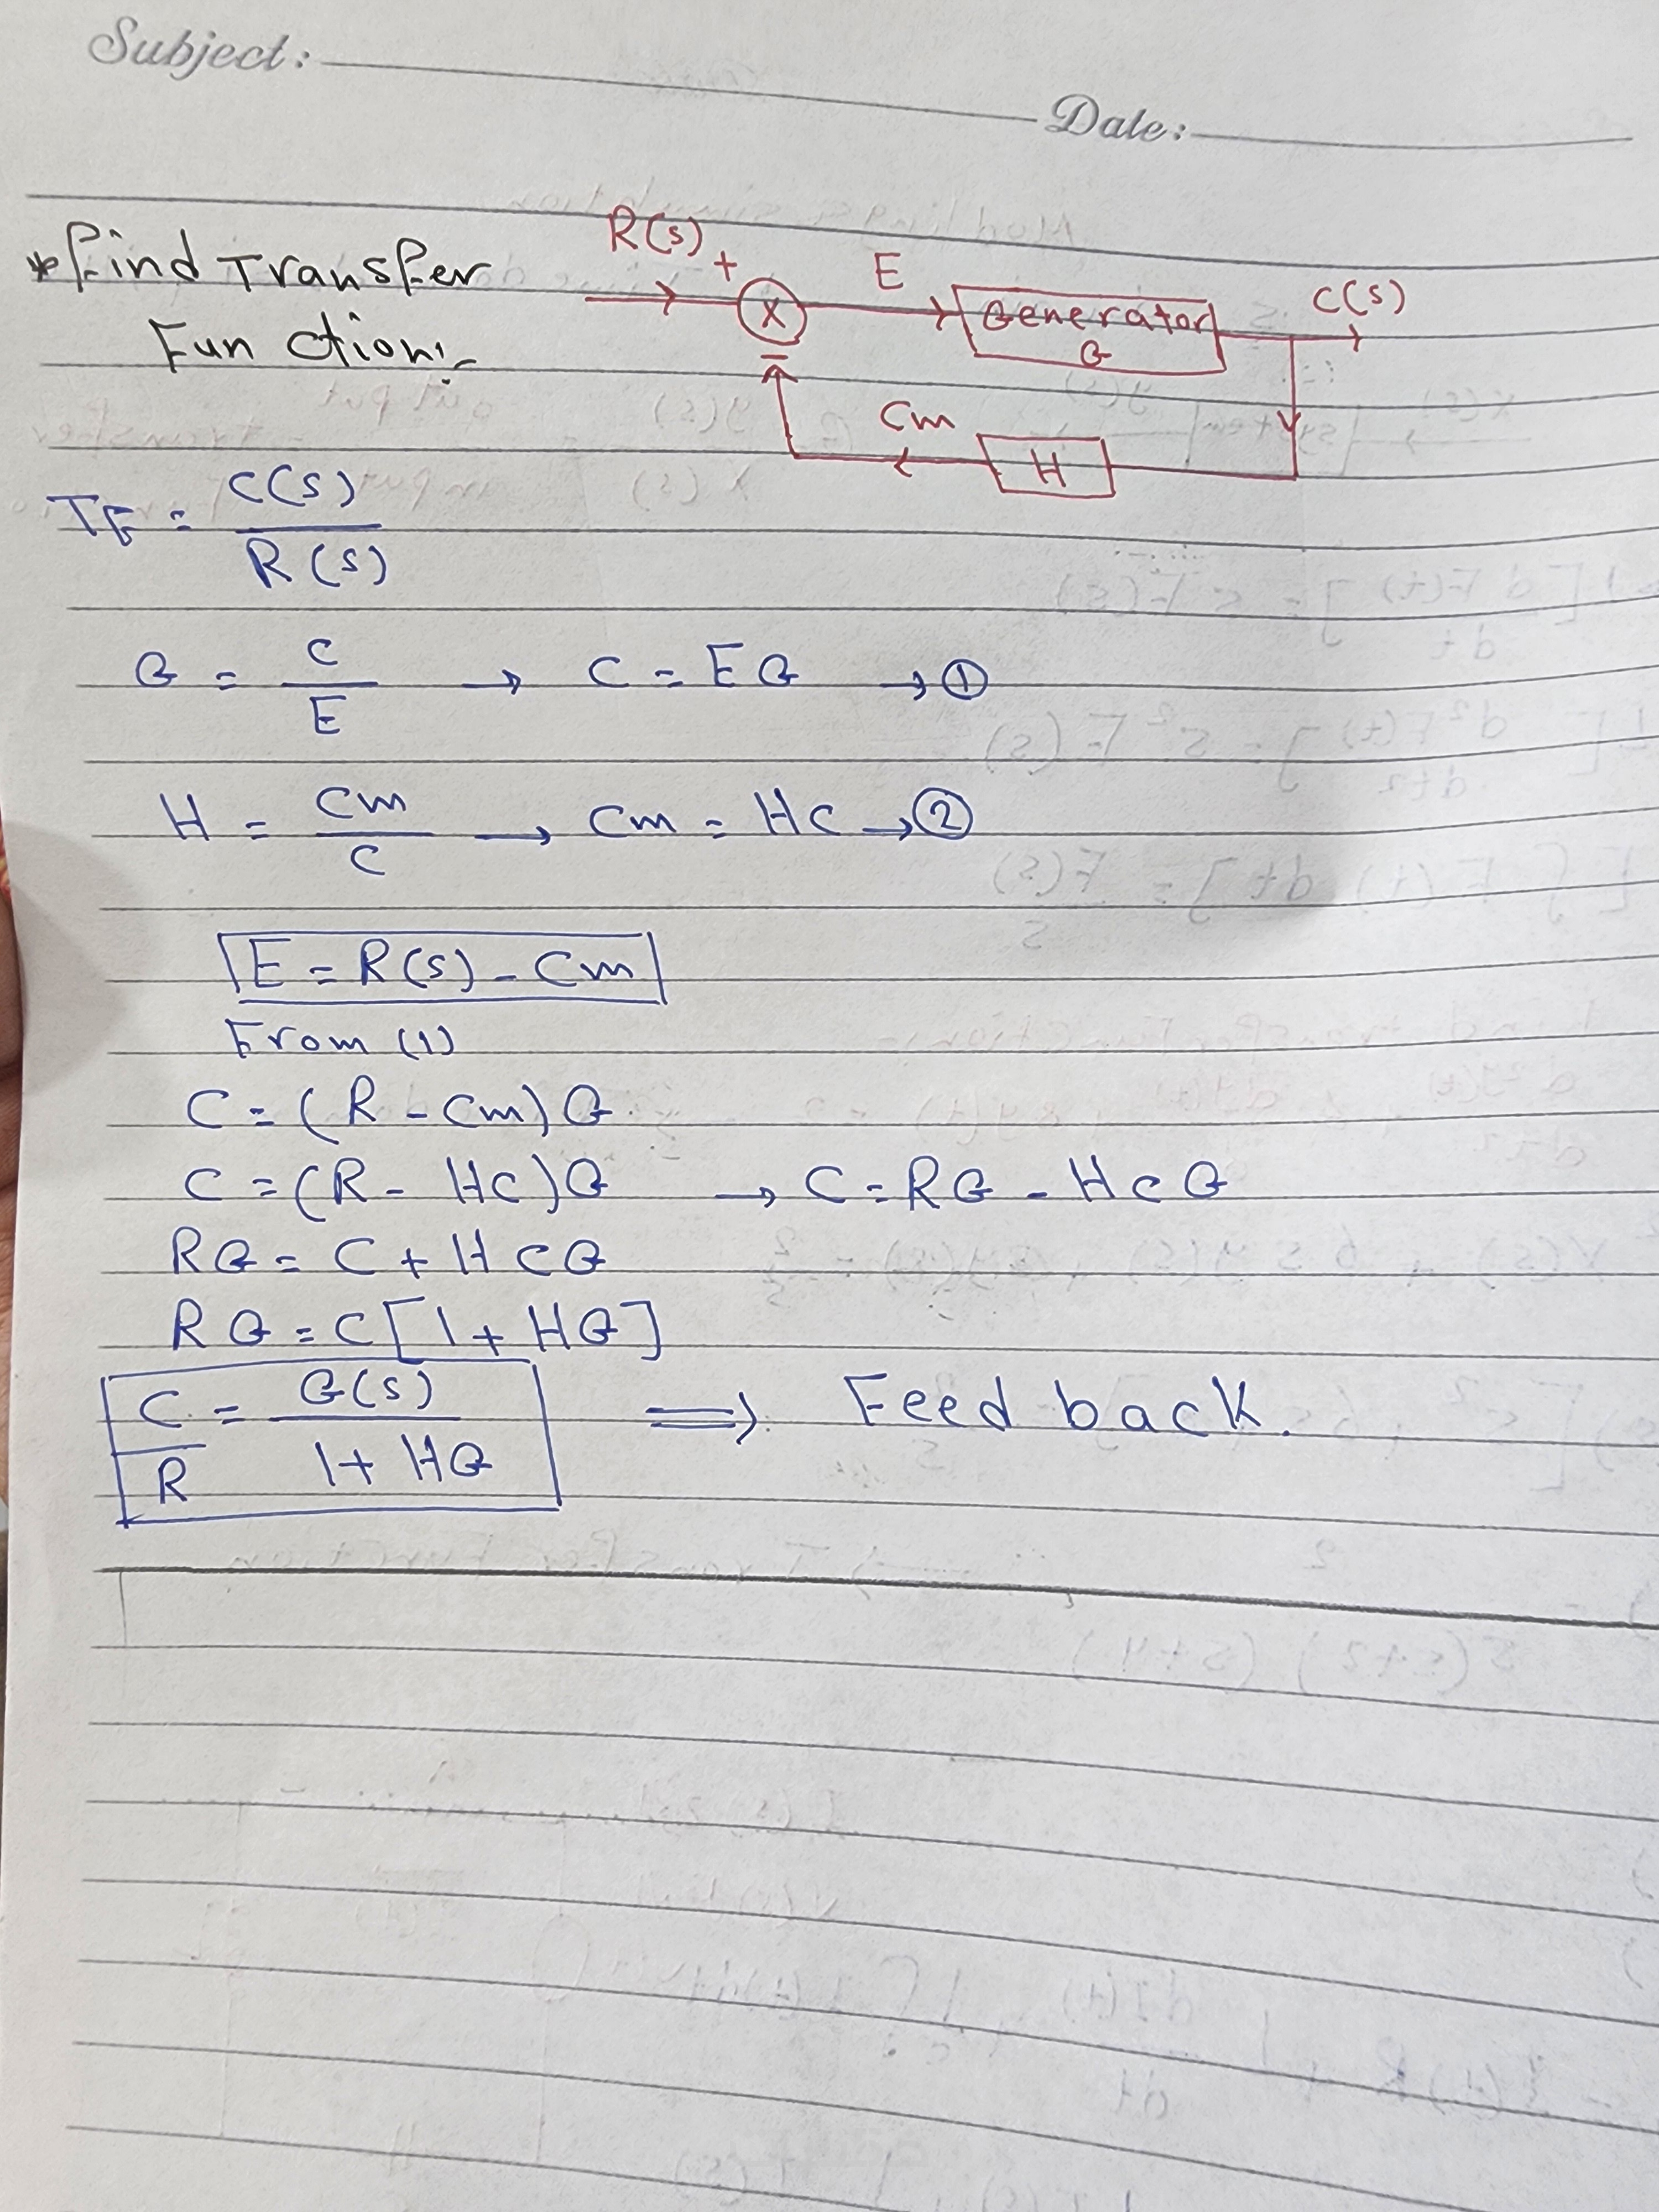 Subject:
Date:
*Find Transfer
Function:-
R(s) + X E Generator G C(s)
-
Cm H
TF = C(s) / R(s)
G = C / E → C = EG → ①
H = Cm / C → Cm = HC → ②
E = R(s) - Cm
From (1)
C = (R - Cm) G
C = (R - HC) G → C = RG - HCG
RG = C + HCG
RG = C [1 + HG]
C / R = G(s) / 1 + HG ⟹ Feed back.